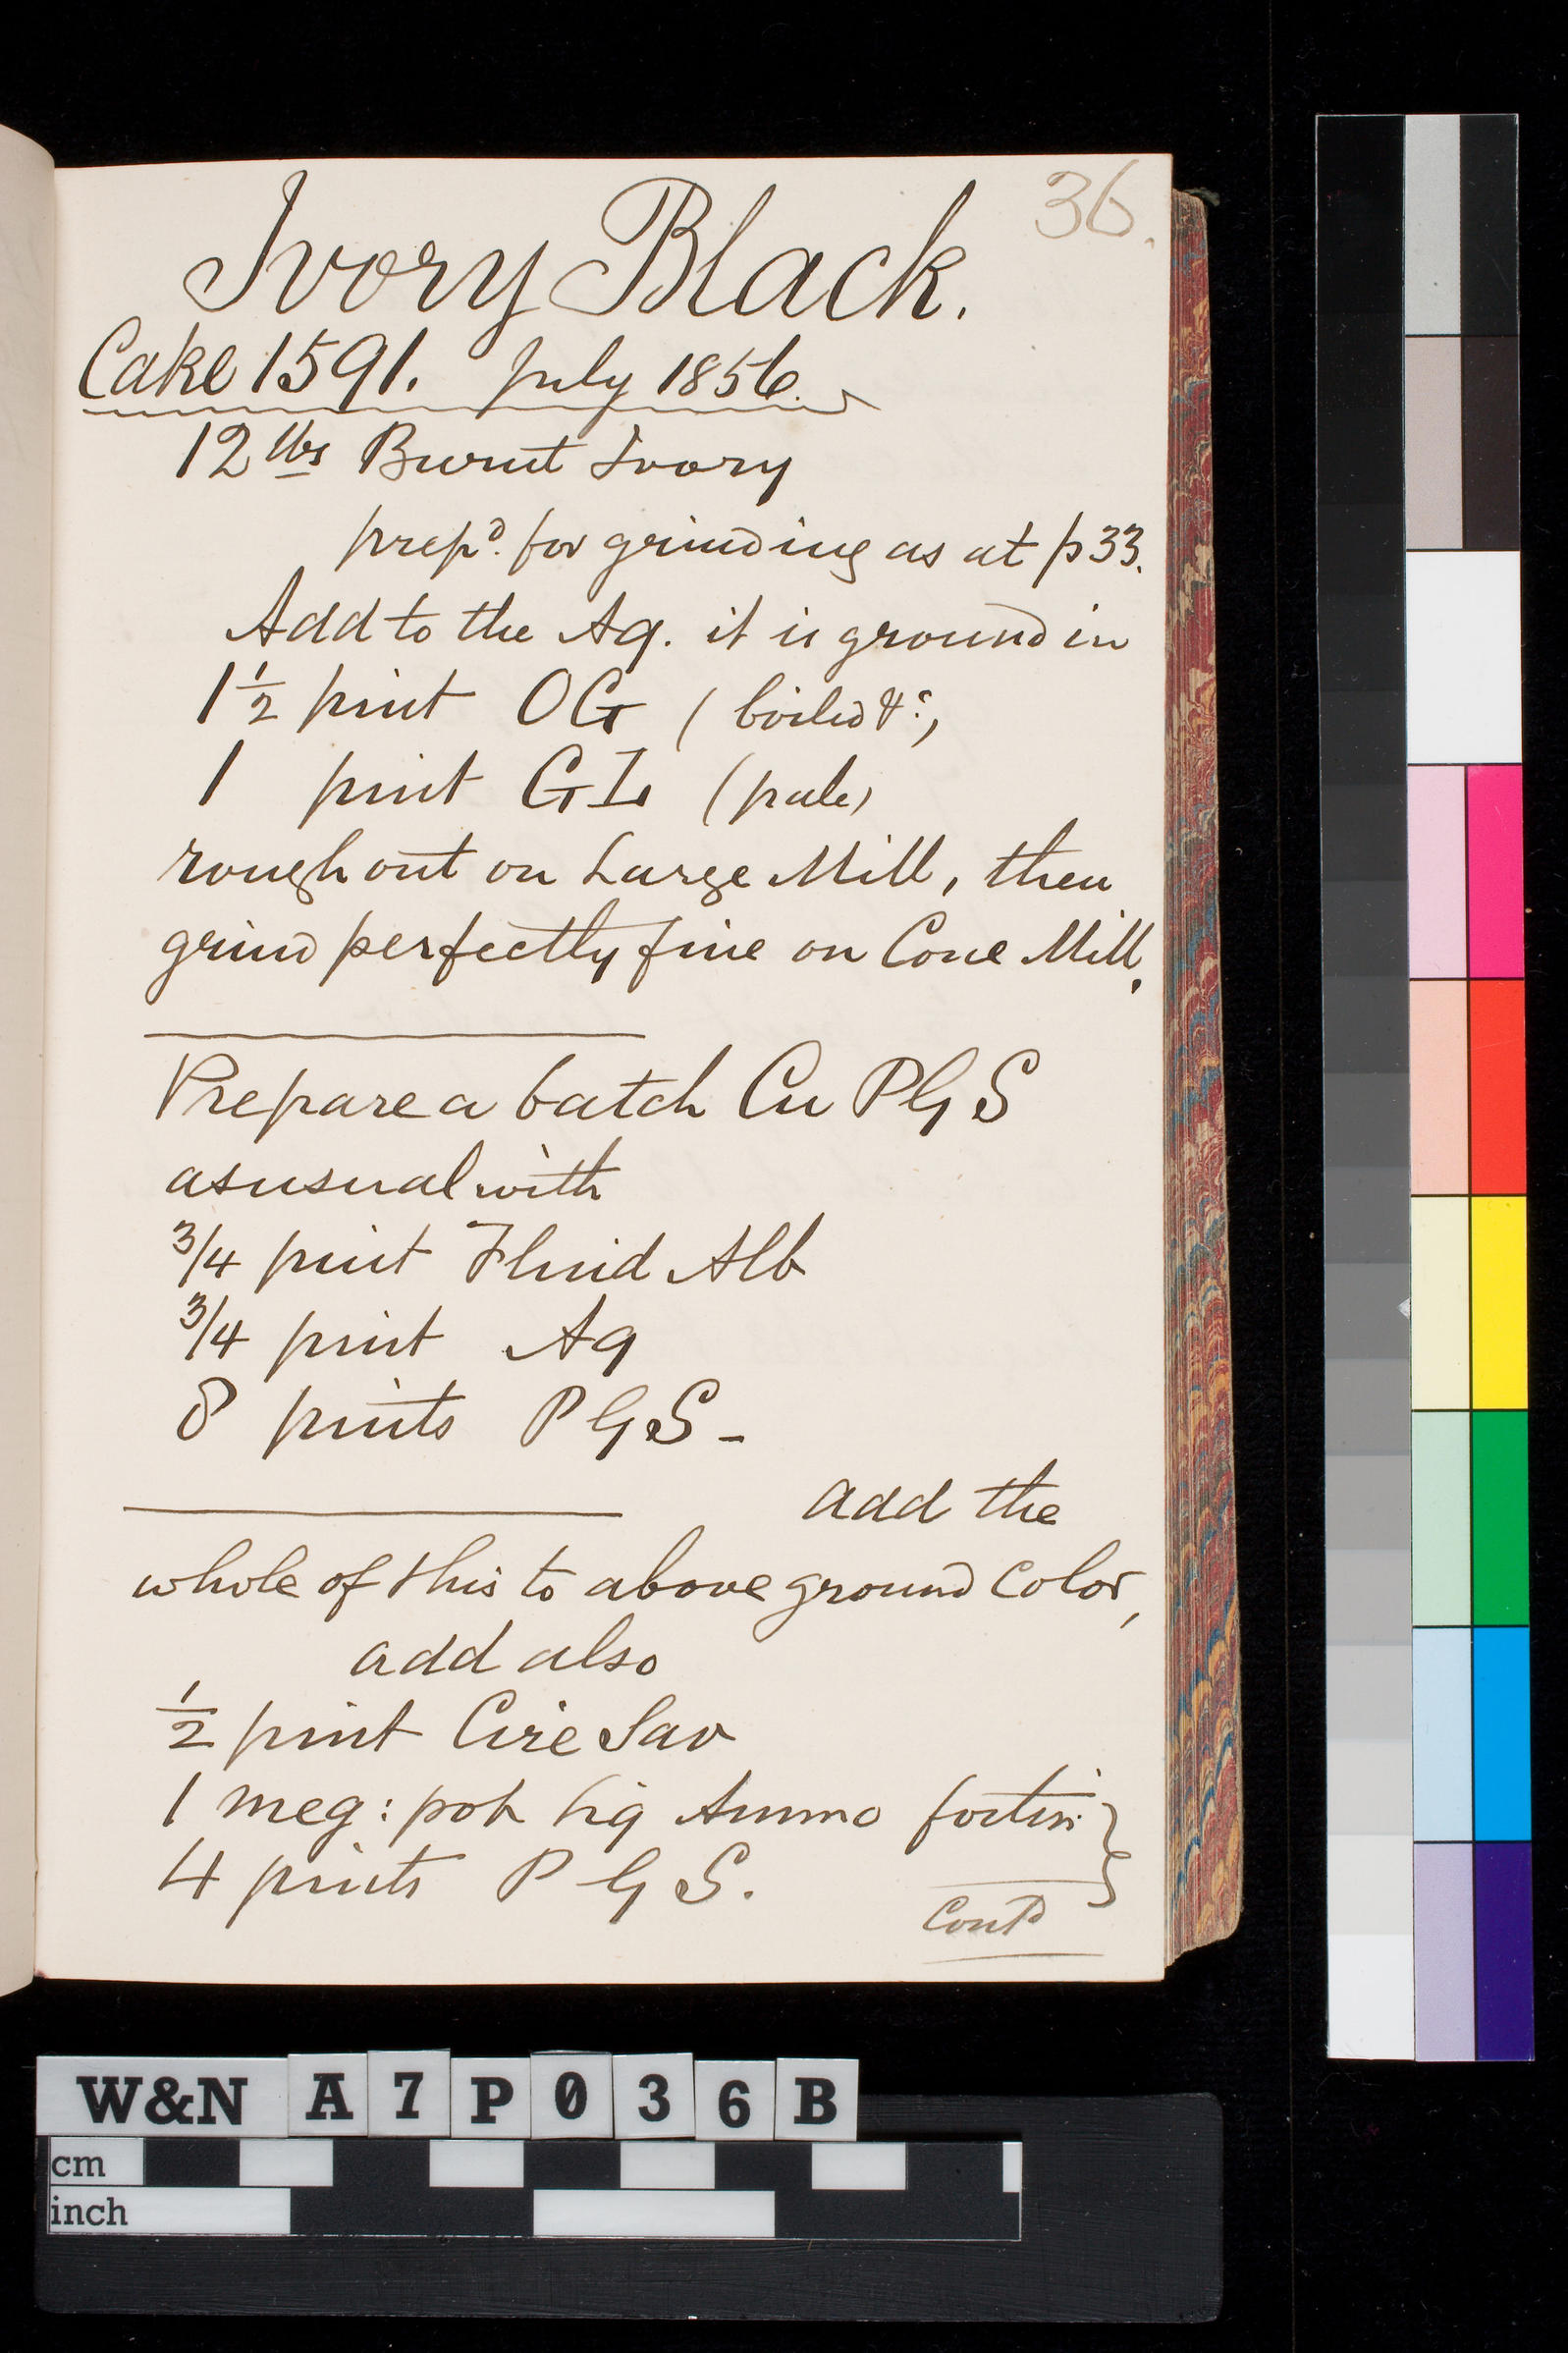 36.
Ivory Black.
Cake 1591. July 1856.
12 lbs Burnt Ivory
prepd. for grinding as at p33.
Add to the Aq. it is ground in
1½ pint OG (boiled &c)
1 pint GL (pale)
rough out on Large Mill, then
grind perfectly fine on Cone Mill.
Prepare a batch Cu PGS
as usual with
3/4 pint Fluid Alb
3/4 pint Aq
8 pints PGS -
add the
whole of this to above ground color,
add also
½ pint Cire Sav
1 meg: pot Liq Ammo fortis:
4 pints P G S.
Contd
W&N A7P036B
cm
inch